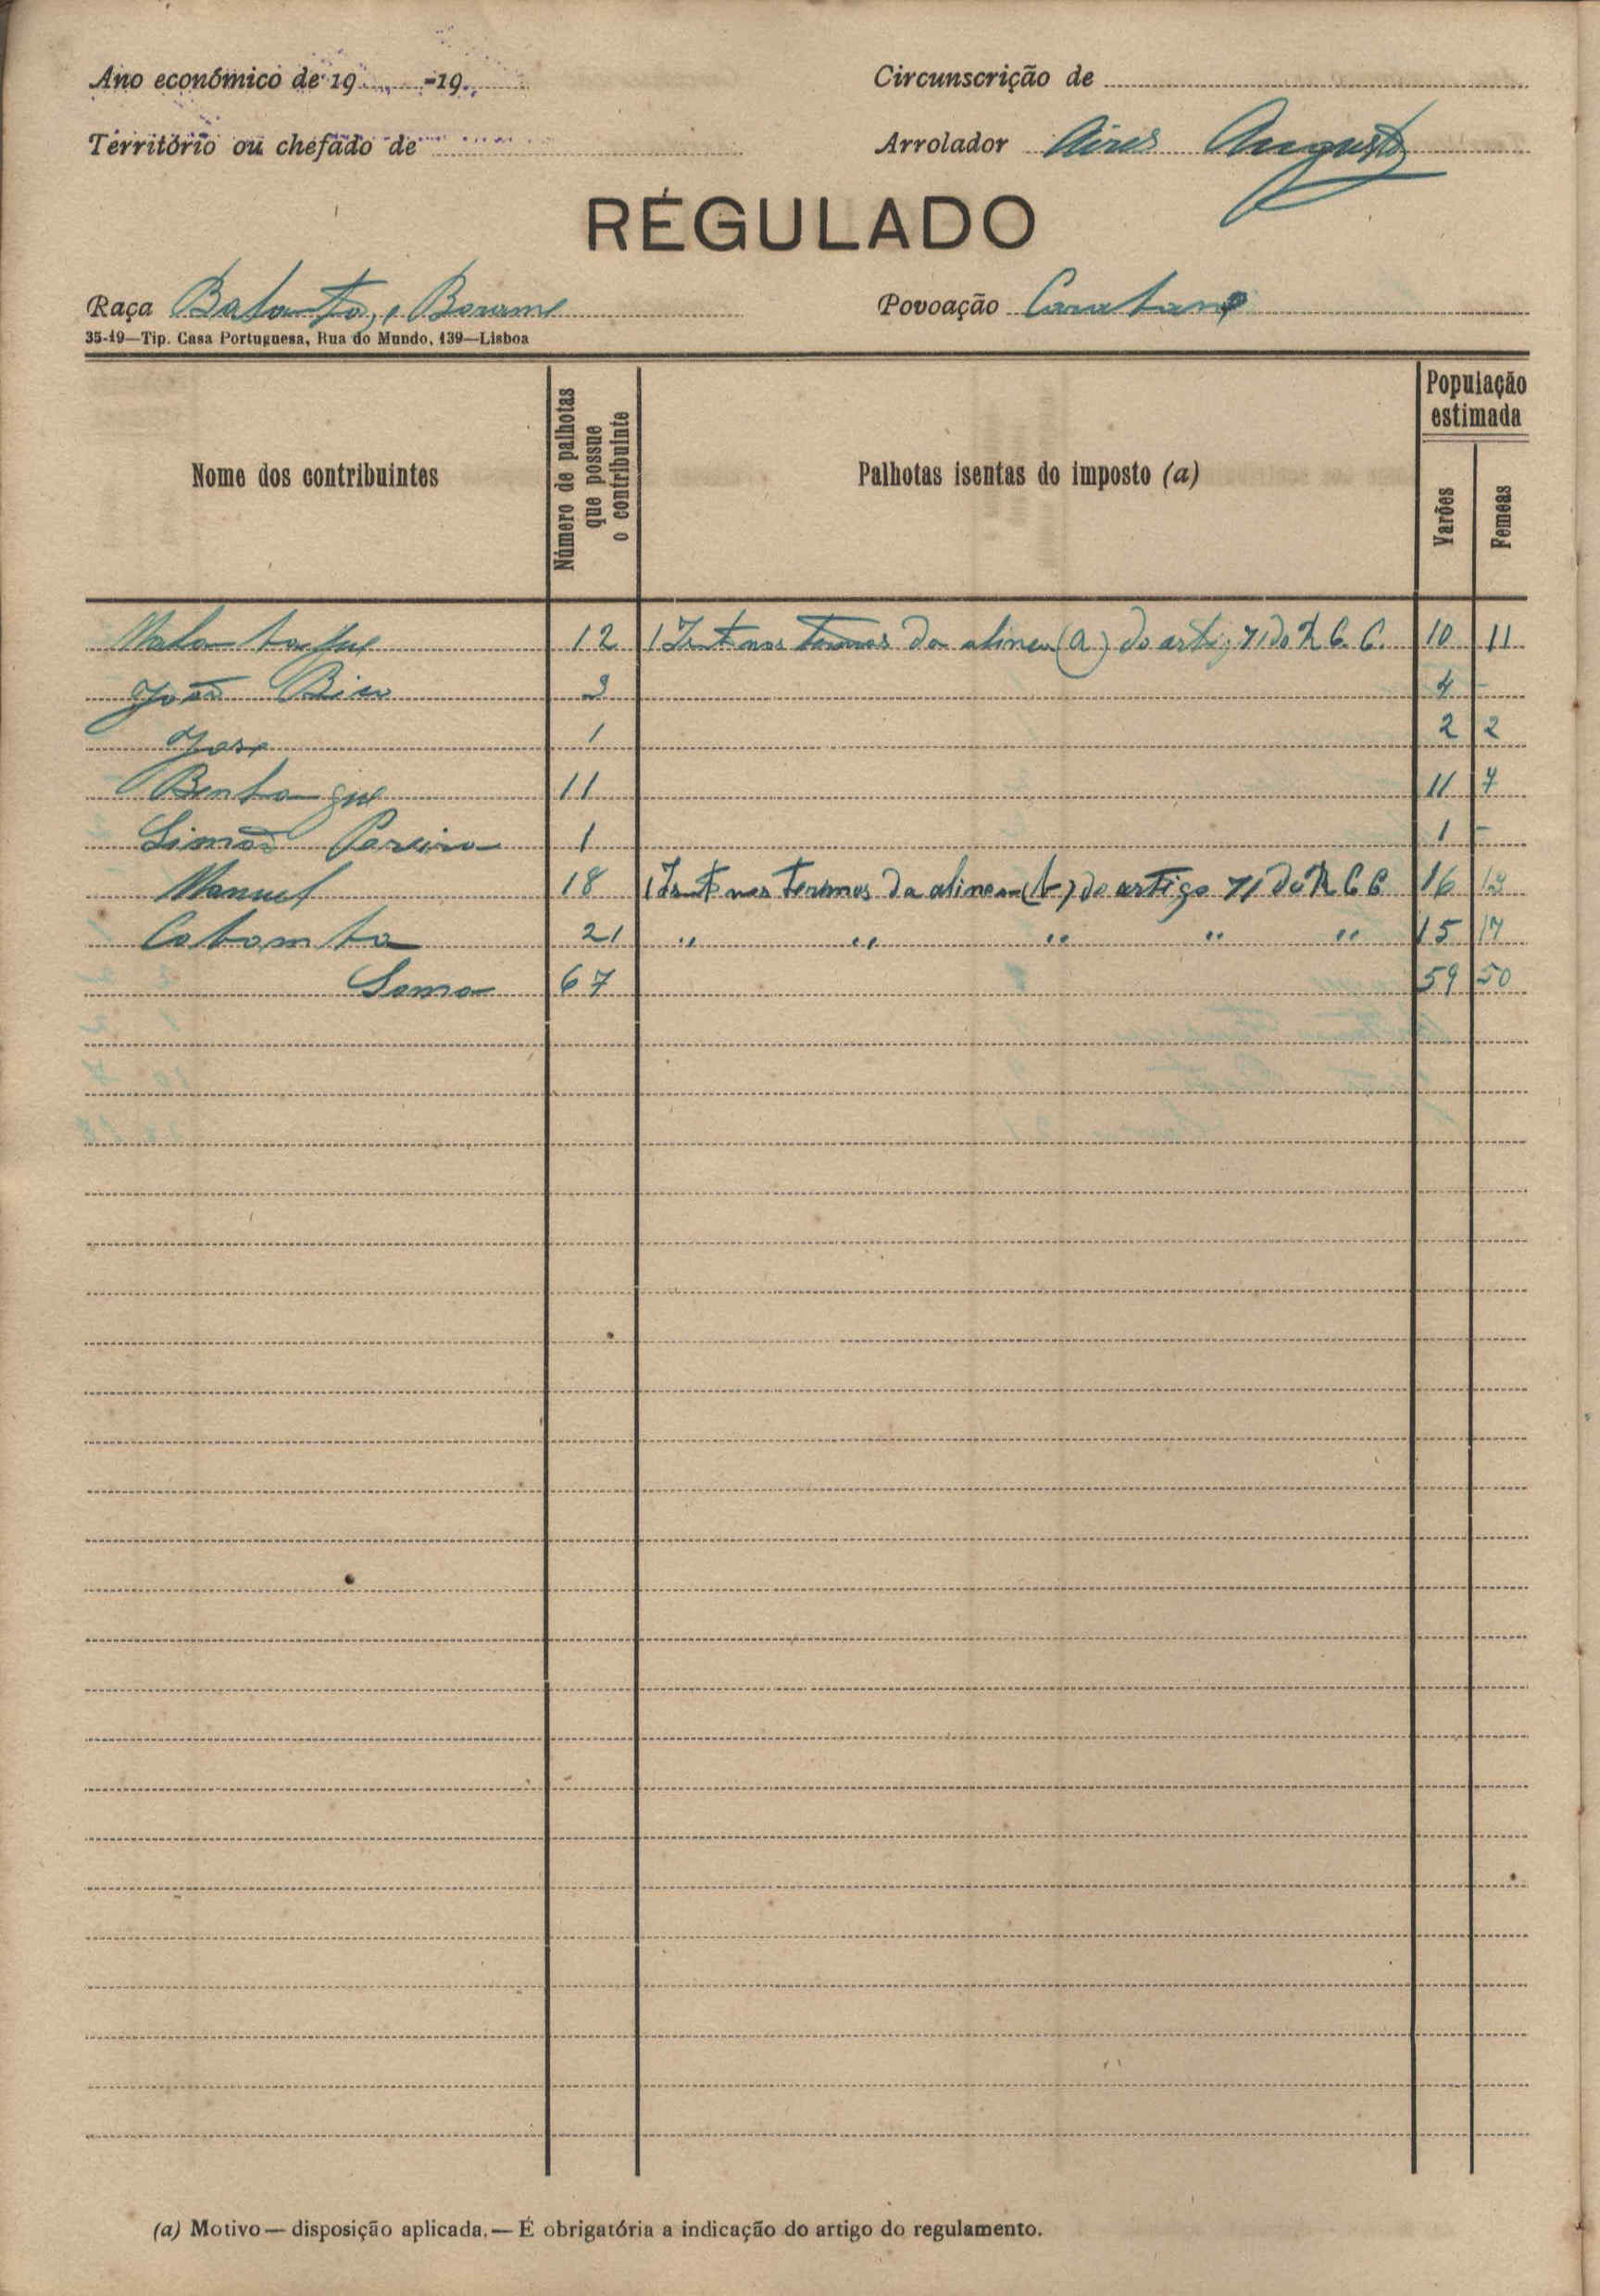 Ano económico de 19 -19
Circunscrição de
Território ou chefado de
Arrolador Aires Augusto
RÉGULADO
Raça Balanta, e Brame
Povoação
35-19—Tip. Casa Portuguesa, Rua do Mundo, 139—Lisboa
Nome dos contribuintes
Número de palhotas que possue o contribuinte
Palhotas isentas do imposto (a)
População estimada
Varões
Femeas
12 1 Isnt nos termos da alinea (a) do artig 71 do R C C. 10 11
João 4 -
Jose 1 2 2
11 11 7
Simão Pereira 1 1 -
Manuel 18 1 Isnt nos termos da alinea (b) do artigo 71 do R C C 16
21 " " " " " 15 17
Soma 67 59 50
(a) Motivo — disposição aplicada. — É obrigatória a indicação do artigo do regulamento.